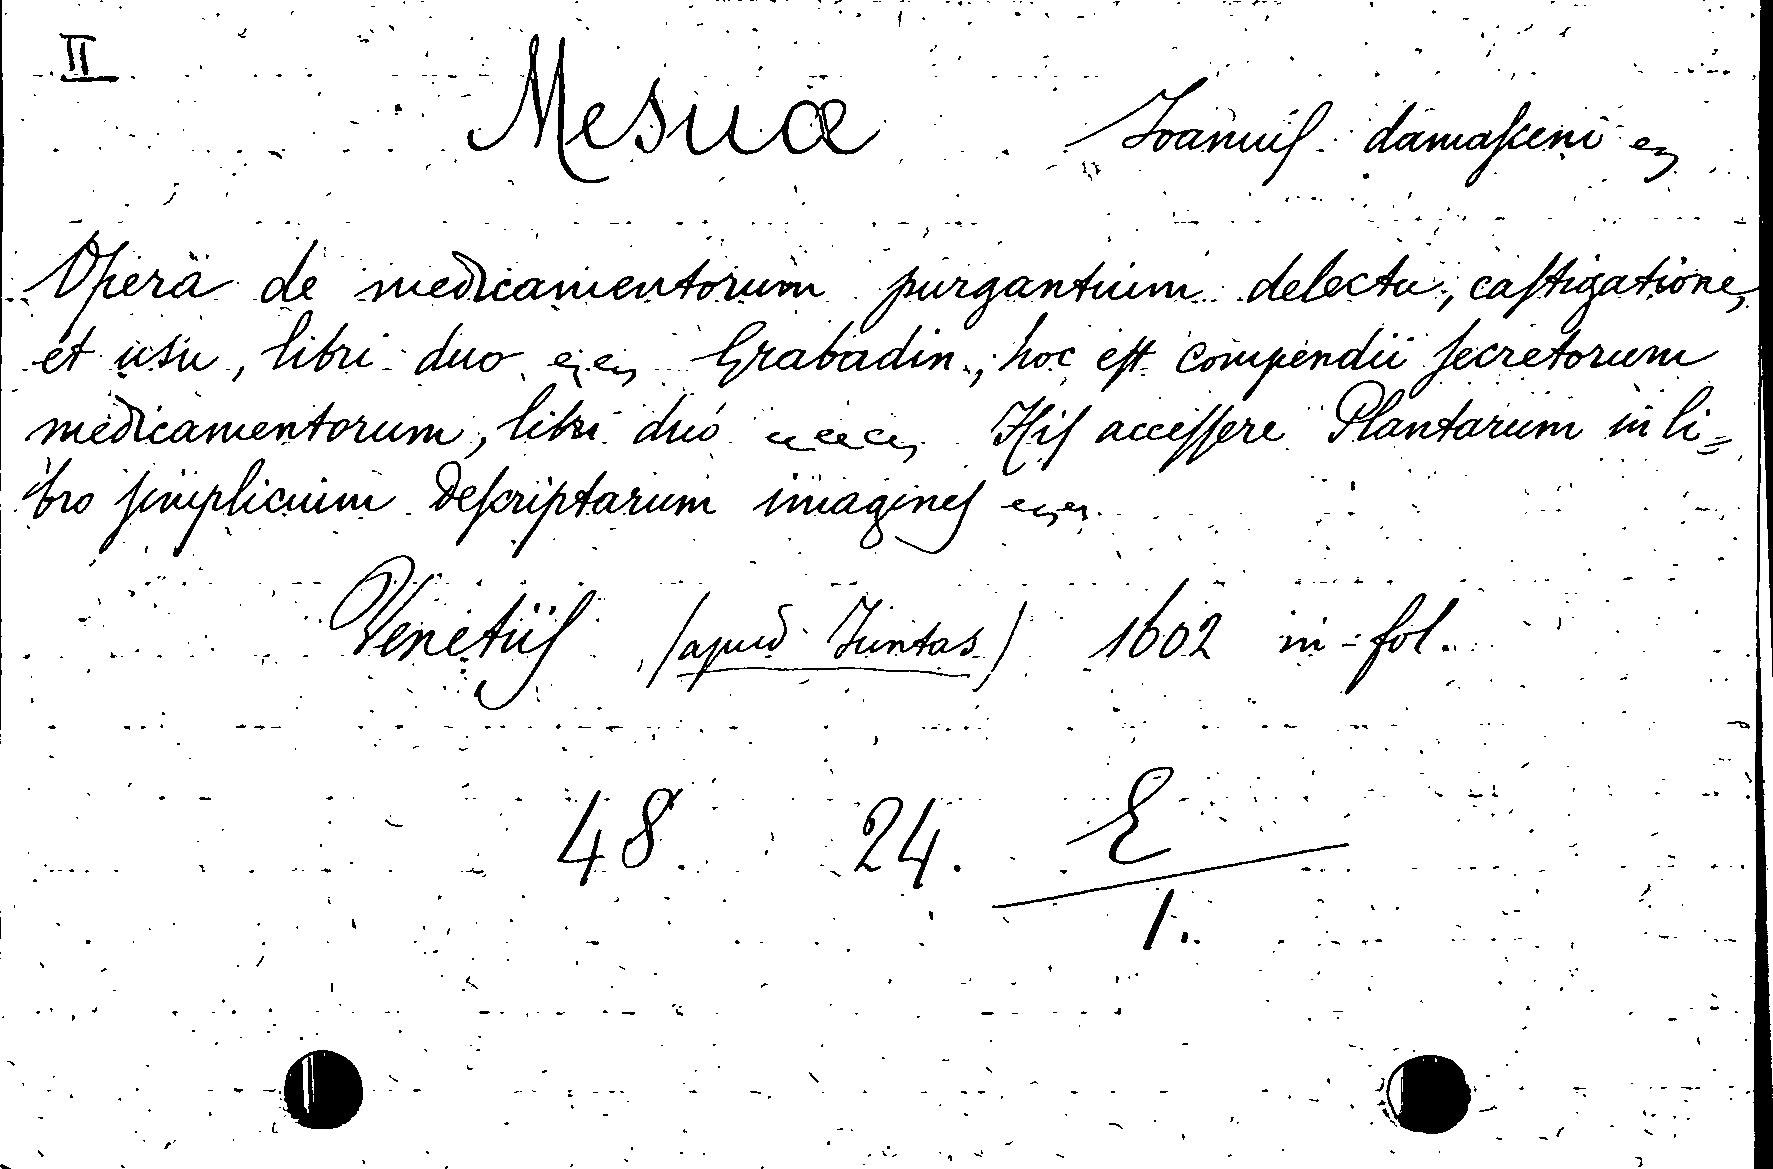 II
Mesuæ Joannis damasceni
Opera de medicamentorum purgantium delectu, castigatione,
et usu, libri duo Grabadin, hoc est compendii secretorum
medicamentorum, libri duo His accessere Plantarum in li=
bro simplicium descriptarum imagines
Venetiis (apud Juntas) 1602 in-fol.
48. 24. E
1.